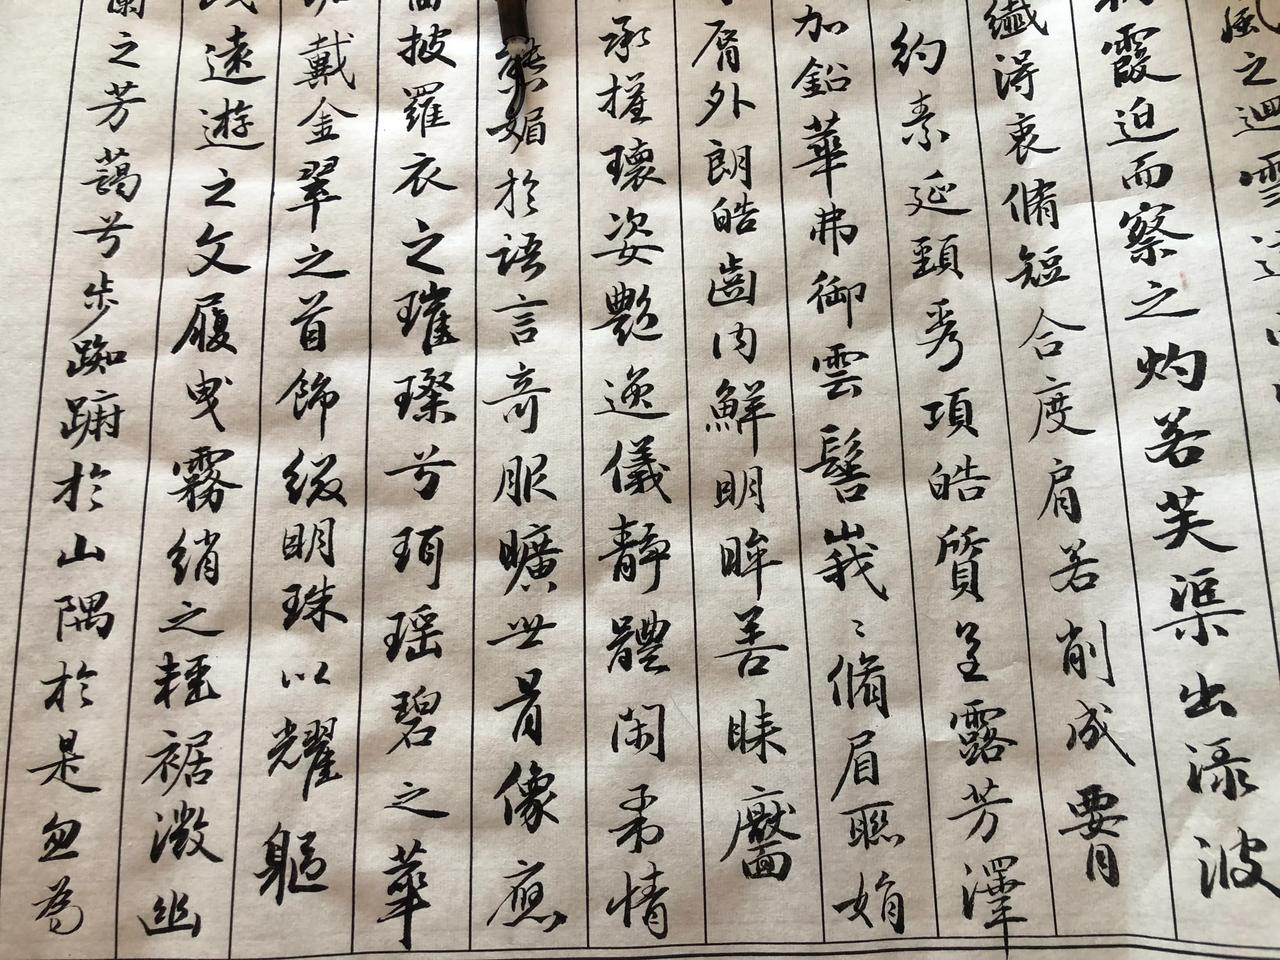 之迴雪
霞迫而察之灼若芙渠出渌波
纖得衷脩短合度肩若削成要
約素延頸秀項皓質呈露芳澤
加鉛華弗御雲髻峩〻脩眉聯娟
脣外朗皓齒内鮮明眸善睐靨
承擢瓌姿艷逸儀靜體閑柔情
媚於語言奇服曠世骨像應
披羅衣之璀璨兮珥瑶碧之華
戴金翠之首飾綴明珠以耀軀
遠遊之文履曳霧綃之輕裾微幽
蘭之芳藹兮步踟蹰於山隅於是忽焉